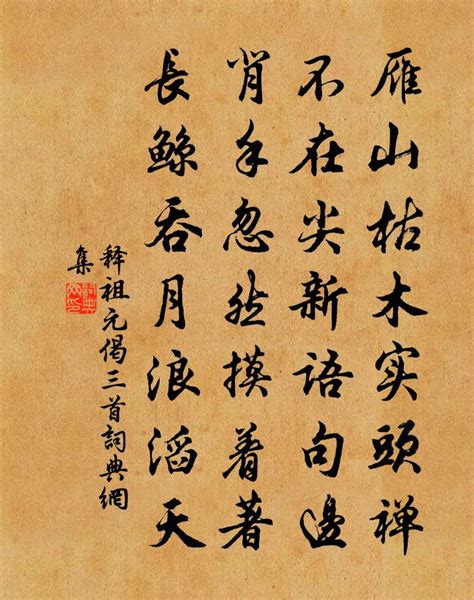 雁山枯木实頭禅
不在尖新語句邊
肖手忽然摸着著
長鲸吞月浪滔天
释祖元偈三首詞典網
集